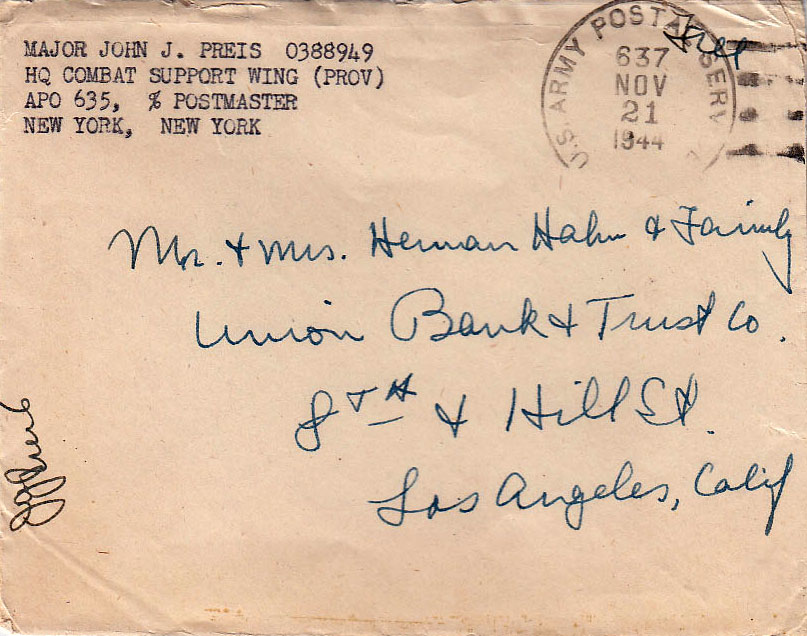 MAJOR JOHN J. PREIS 0388949
HQ COMBAT SUPPORT WING (PROV)
APO 635, % POSTMASTER
NEW YORK, NEW YORK
U.S. ARMY POSTAL SERV
637
NOV
21
1944
Free
Mr. & Mrs. Herman Hahn & Family
Union Bank & Trust Co.
8TH & Hill St.
Los Angeles, Calif
JJPreis